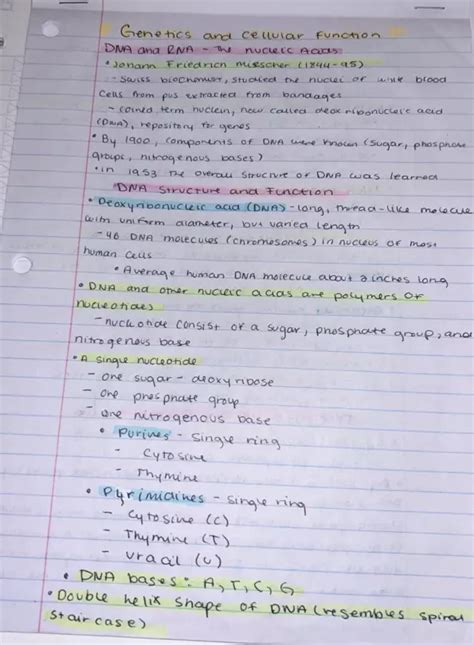 Genetics and cellular Function
DNA and RNA - The nucleic Acids
• Johann Friedrich Miescher (1844-95)
- Swiss biochemist, studied the nuclei of white blood
cells from pus extracted from bandages
- coined term nuclein, now called deoxyribonucleic acid
(DNA), repository for genes
• By 1900, components of DNA were known (sugar, phosphate
groups, nitrogenous bases)
• in 1953 the overall structure of DNA was learned
DNA Structure and Function
• Deoxyribonucleic acid (DNA) - long, thread-like molecule
with uniform diameter, but varied length
- 46 DNA molecules (chromosomes) in nucleus of most
human cells
• Average human DNA molecule about 2 inches long
• DNA and other nucleic acids are polymers of
nucleotides
- nucleotide consist of a sugar, phosphate group, and
nitrogenous base
• A single nucleotide
- one sugar - deoxyribose
- one phosphate group
- one nitrogenous base
• Purines - single ring
- Cytosine
- Thymine
• Pyrimidines - single ring
- Cytosine (C)
- Thymine (T)
- uracil (U)
• DNA bases: A, T, C, G
• Double helix shape of DNA (resembles spiral
staircase)